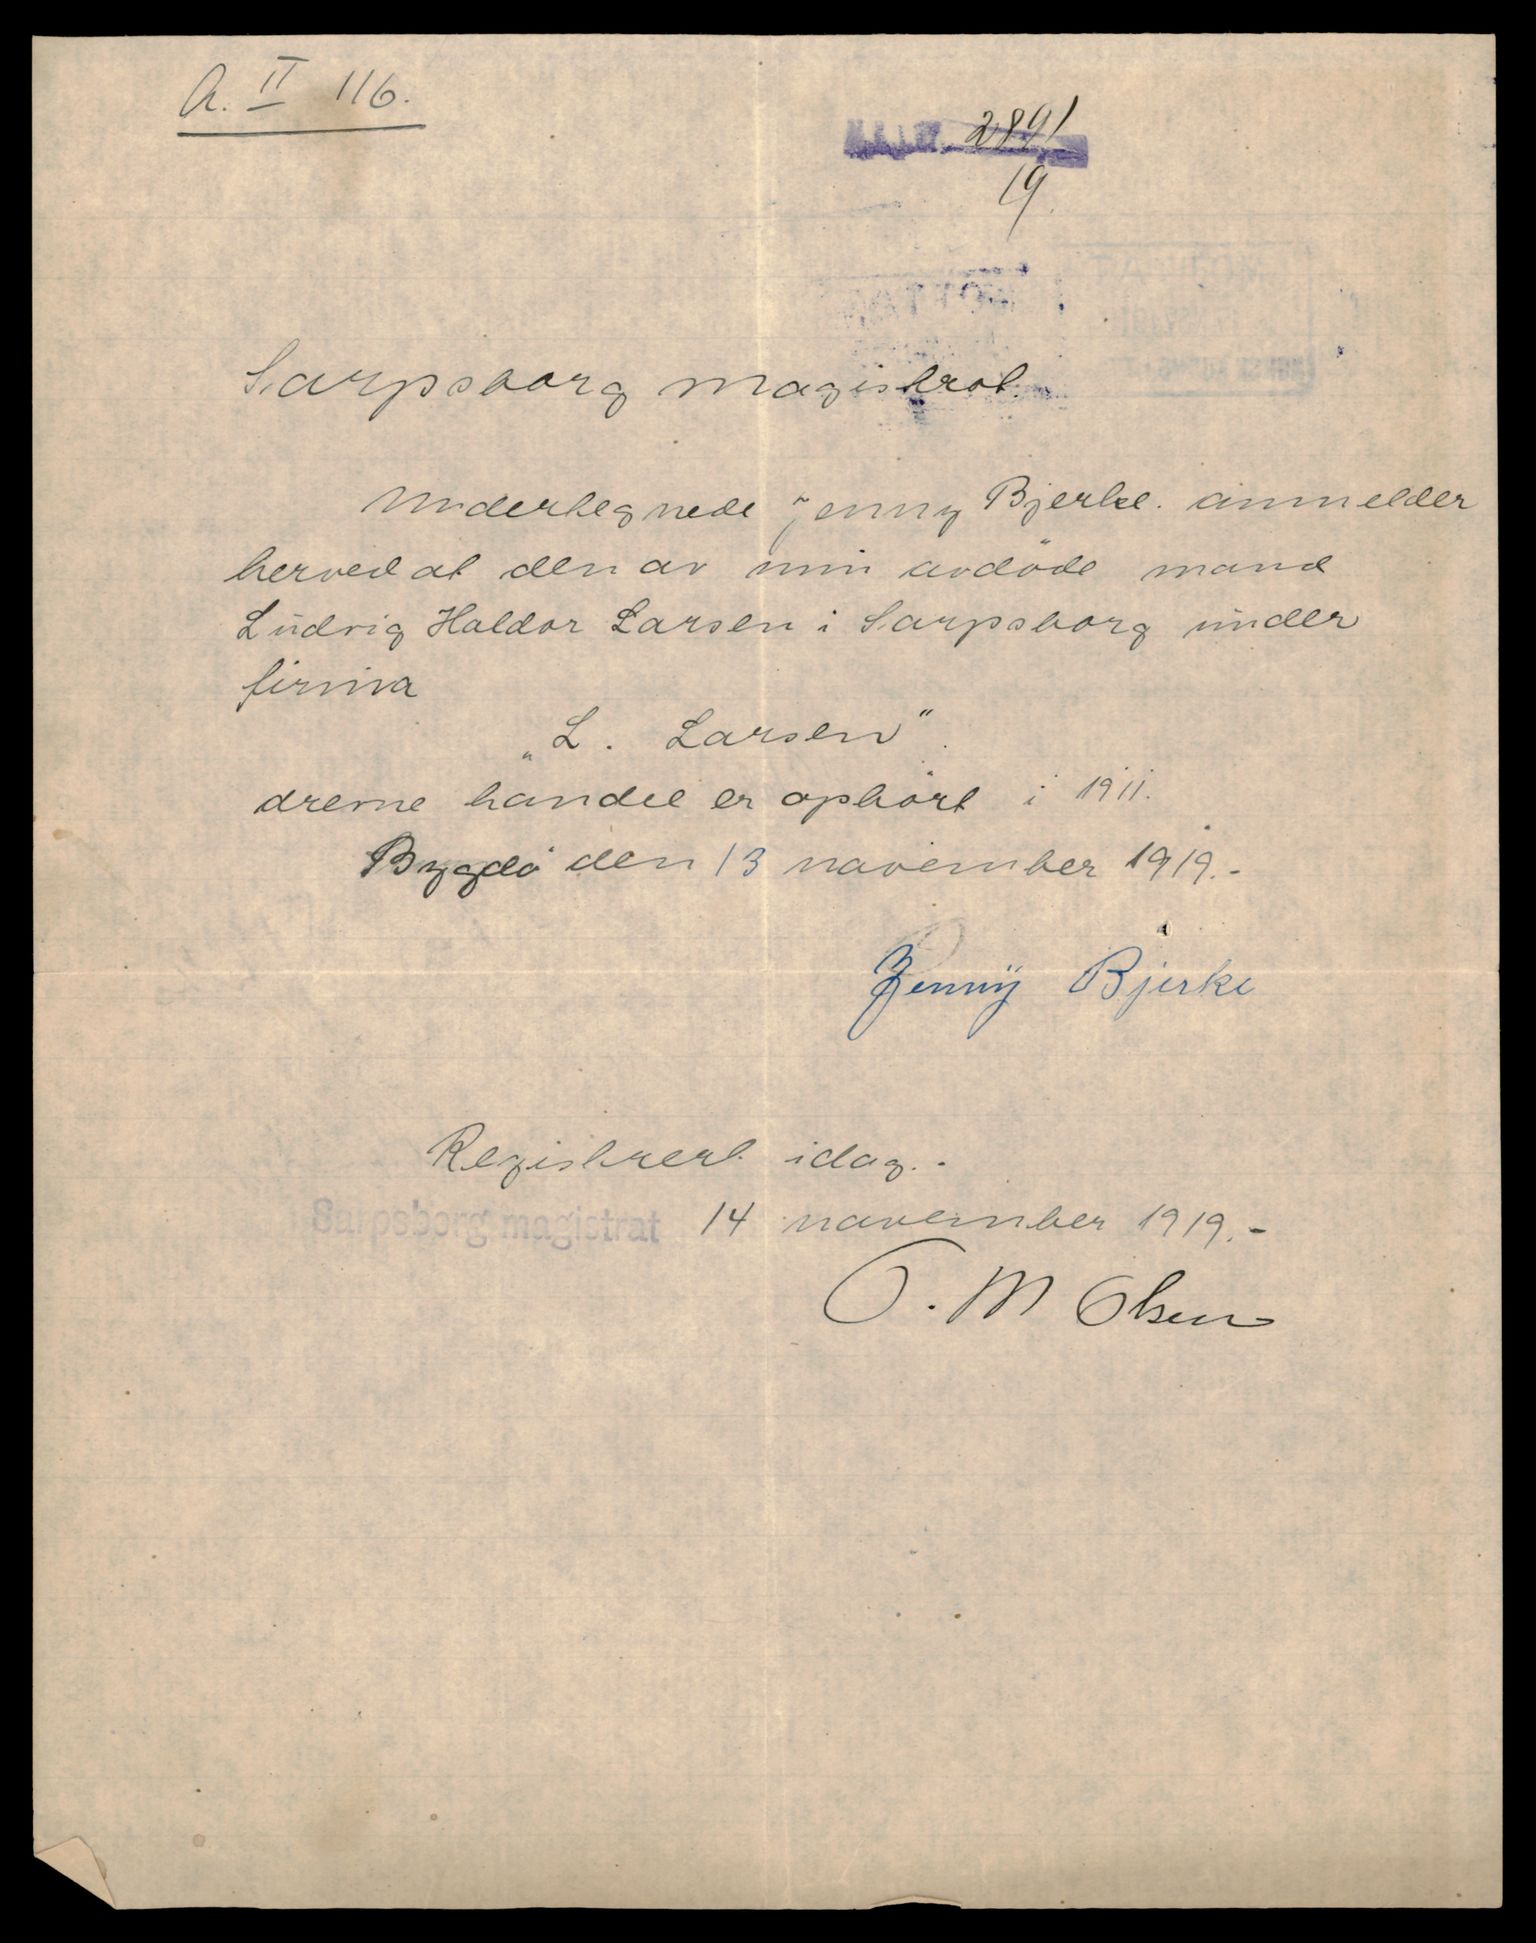 A. II 116.
2891
19.
Sarpsborg magistrat.
Undertegnede Jenny Bjerke. anmelder
herved at den av min avdöde mand
Ludvig Haldor Larsen i Sarpsborg under
firma
„L. Larsen".
drevne handel er ophört i 1911.
Bygdö den 13 november 1919.-
Jenny Bjerke
Registrert idag.-
Sarpsborg magistrat 14 november 1919.-
O. M Olsen